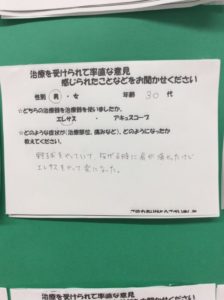 治療を受けられて率直な意見
感じられたことなどをお聞かせください
性別 男・女 年齢 30 代
☆どちらの治療器を治療器を使いましたか。
エレサス ・ アキュスコープ
☆どのような症状が(治療部位、痛みなど)、どのようになったか
教えてください。
野球をやっていて、投げる時に肩が痛かったけど
エレサスをやって楽になった。
治療を受けられて率直な意見